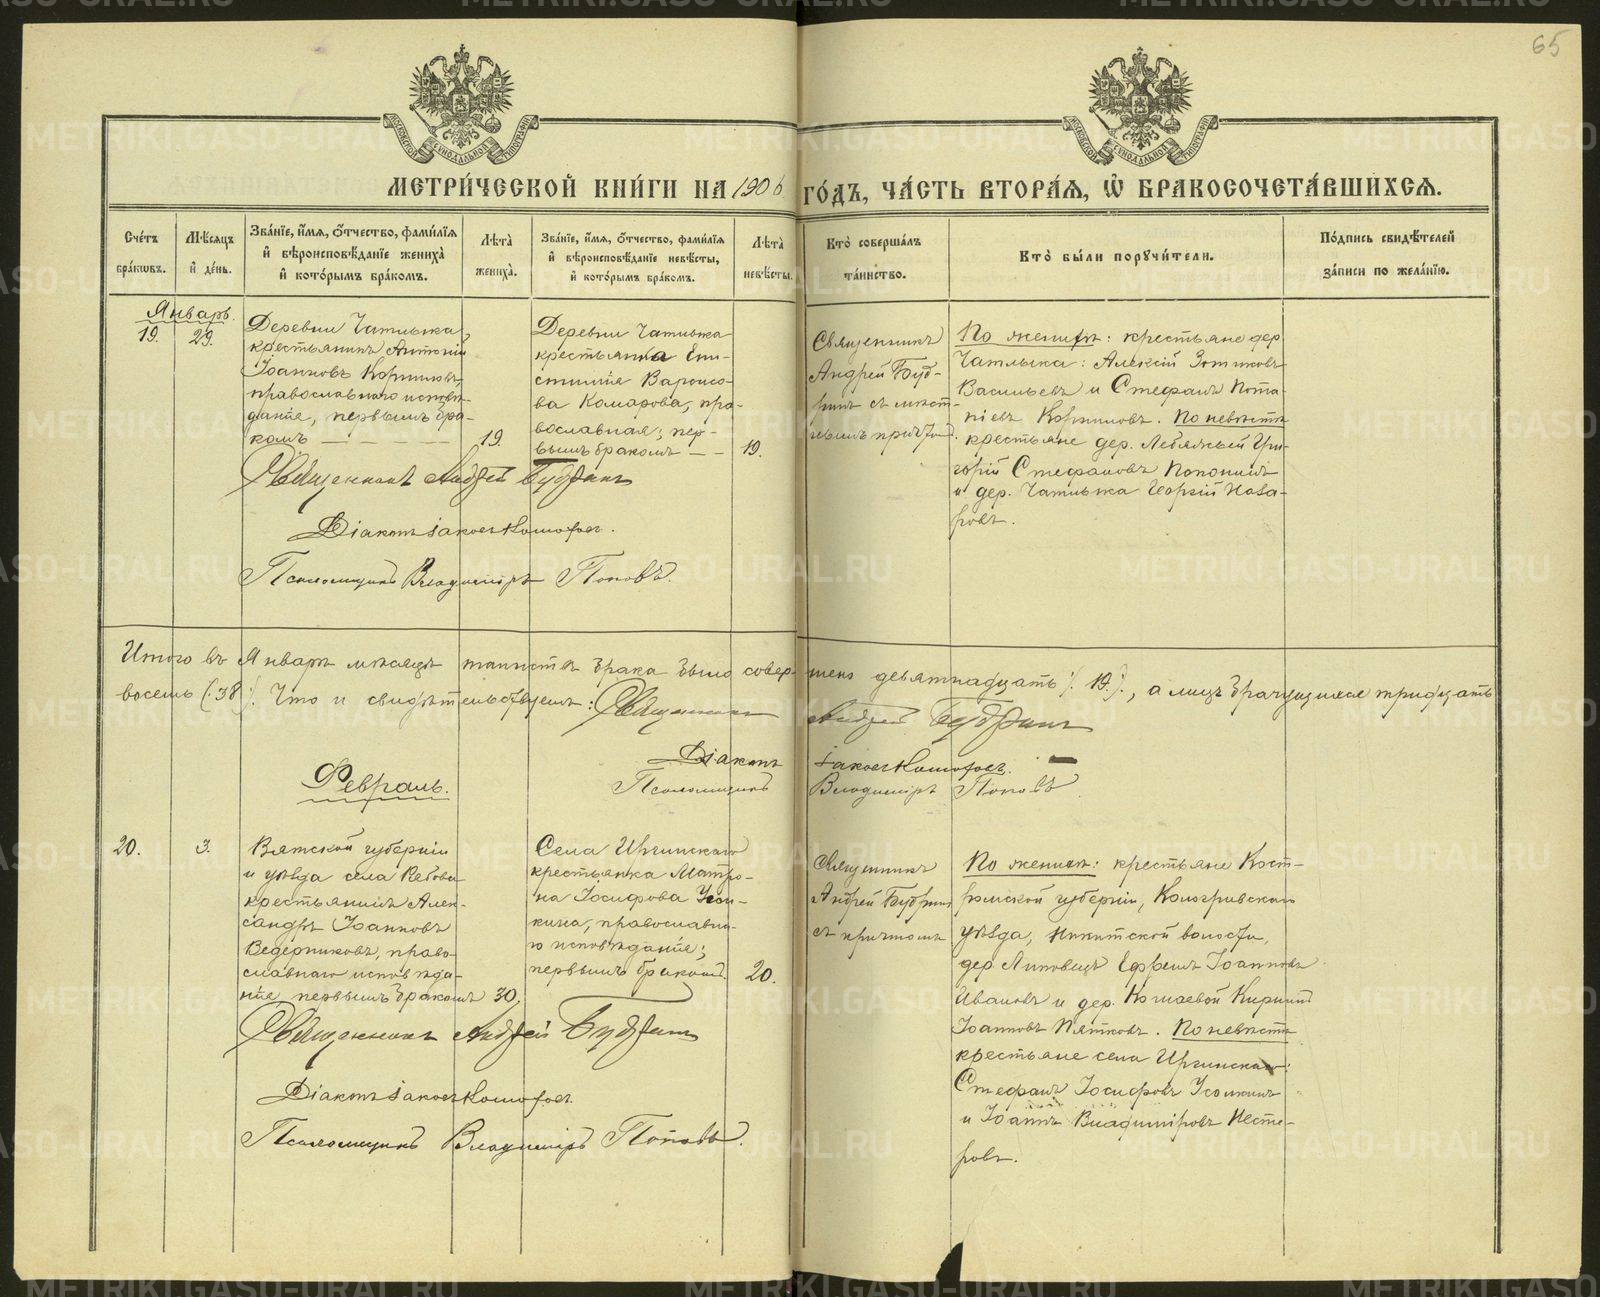 65
МЕТРИ́ЧЕСКОЙ КНИ́ГИ НА 1906 ГО́ДЪ, ЧА́СТЬ ВТОРА́Я, Ѡ҆ БРАКОСОЧЕТА́ВШИХСЯ.
Сче́тъ бра́кѡвъ.
Мѣ́сяцъ и҆ де́нь.
Зва́нїе, и҆́мя, ѻ҆́тчество, фами́лїя и҆ вѣроисповѣ́данїе жениха̀ и҆ кото́рымъ бра́комъ.
Лѣ́та жениха̀.
Зва́нїе, и҆́мя, ѻ҆́тчество, фами́лїя и҆ вѣроисповѣ́данїе невѣ́сты, и҆ кото́рымъ бра́комъ.
Лѣ́та невѣ́сты.
Кто̀ соверша́лъ та́инство.
Кто̀ бы́ли порꙋчи́тели.
По́дпись свидѣ́телей за́писи по жела́нїю.
Январь.
19.
29.
Деревни Чатлыка
крестьянинъ Антоній
Іоанновъ Корниловъ,
православнаго исповѣ-
данія, первымъ бра-
комъ
19.
Деревни Чатлыка
крестьянка Епи-
стимія
ва Комарова, пра-
вославная; пер-
вымъ бракомъ
19.
Священникъ
Андрей Буд-
ринъ съ мѣст-
нымъ причтомъ.
По женихѣ: крестьяне дер.
Чатлыка: Алексій Зотиковъ
Васильевъ и Стефанъ Пота-
піевъ Корниловъ. По невѣстѣ
крестьяне дер. Лебяжьей Гри-
горій Стефановъ Папонинъ
и дер. Чатлыка Георгій Наза-
ровъ.
Священникъ Андрей Будринъ
Діаконъ Іаковъ
Псаломщикъ Владиміръ Поповъ.
Итого въ Январѣ мѣсяцѣ таинствъ брака было совер-шено девятнадцать /. 19 ./, а лицъ брачущихся тридцать
восемь /. 38 ./. Что и свидѣтельствуемъ: Священникъ Андрей Будринъ
Діаконъ Іаковъ
Псаломщикъ Владиміръ Поповъ
Февраль.
20.
3.
Вятской губерніи
и уѣзда села
крестьянинъ Алек-
сандръ Іоанновъ
Ведерниковъ, право-
славнаго исповѣда-
нія первымъ бракомъ
30.
Села Иргинскаго
крестьянка Матро-
на Іосифова Усол-
кина, православна-
го исповѣданія;
первымъ бракомъ.
20.
Священникъ
Андрей Будринъ
съ причтомъ
По женихѣ: крестьяне Кост-
ромской губерніи, Кологривскаго
уѣзда, Никитской волости,
дер. Липовецъ Ефремъ Іоанновъ
Ивановъ и дер. Кириллъ
Іоанновъ Пятковъ. По невѣстѣ
крестьяне села Иргинскаго:
Стефанъ Іосифовъ Усолкинъ
и Іоаннъ Владиміровъ Несте-
ровъ.
Священникъ Андрей Будринъ
Діаконъ Іаковъ
Псаломщикъ Владиміръ Поповъ.
METRIKI.GASO-URAL.RU